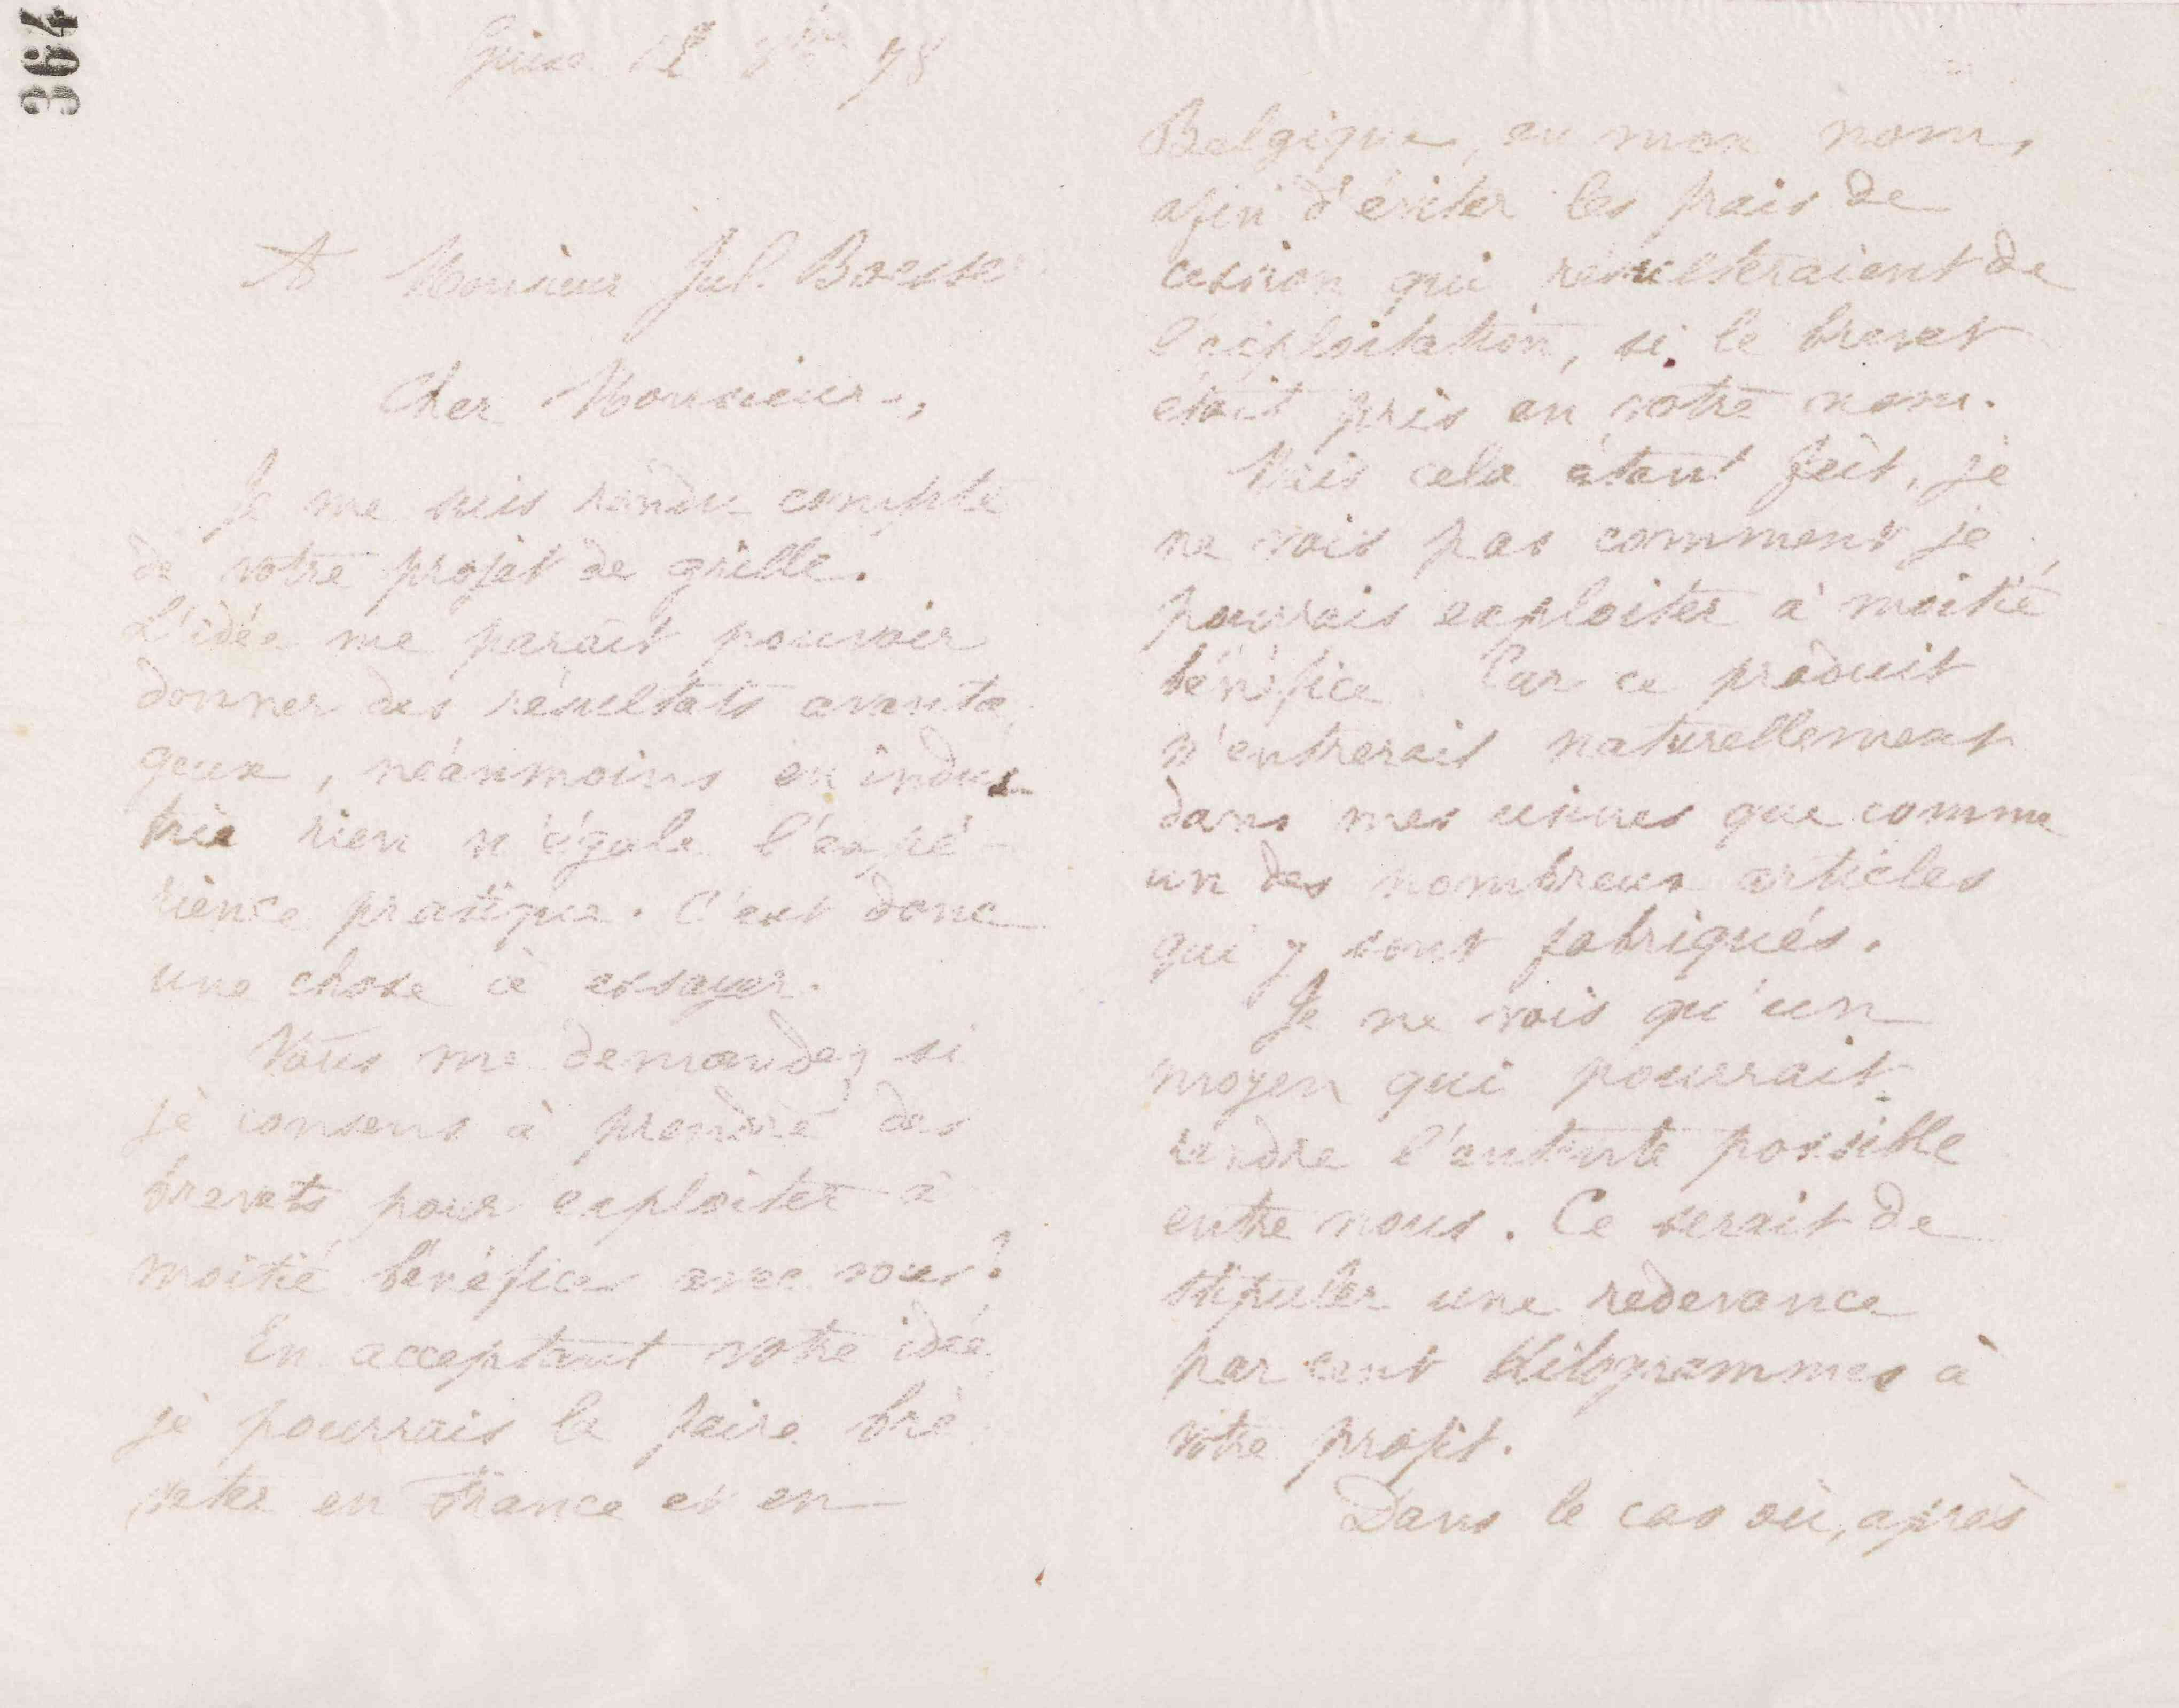 364
Guise 12 bre 78
A Monsieur Jul.
Cher Monsieur,
Je me suis rendu compte
de votre projet de grille.
L'idée me paraît pouvoir
donner des résultats avanta
geux, néanmoins en indus
trie rien n'égale l'expé-
rience pratique. C'est donc
une chose à essayer.
Vous me demandez si
je consens à prendre des
brevets pour exploiter à
moitié bénéfices avec vous?
En acceptant votre idée
je pourrais la faire bre
veter en France et en
Belgique, en mon nom,
afin d'éviter les frais de
cession qui résulteraient de
l'exploitation, si le brevet
était pris en votre nom.
Mais cela étant fait, je
ne vois pas comment je
pourrais exploiter à moitié
bénéfice. Car ce produit
n'entrerait naturellement
dans mes usines que comme
un des nombreux articles
qui y sont fabriqués.
Je ne vois qu'un
moyen qui pourrait
rendre l'entente possible
entre nous. Ce serait de
stipuler une redevance
par cent kilogrammes à
votre profit.
Dans le cas où, après